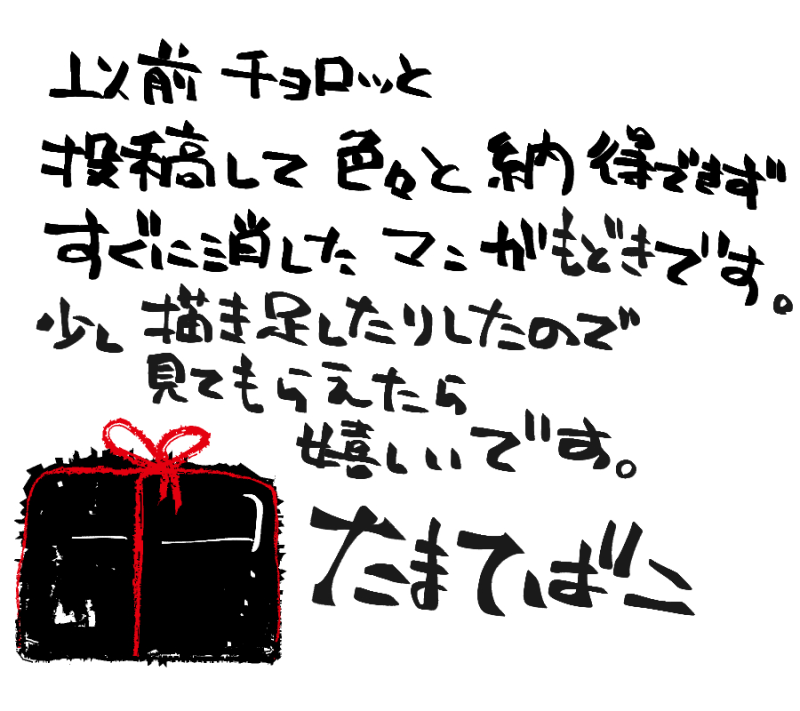 以前 チョロッと
投稿して 色々と 納得できず
すぐに消した マンガもどきです。
少し 描き足したりしたので
見てもらえたら
嬉しいです。
たまてばこ